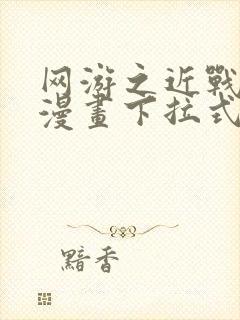 网游之近戰
漫畫下拉式
黯香